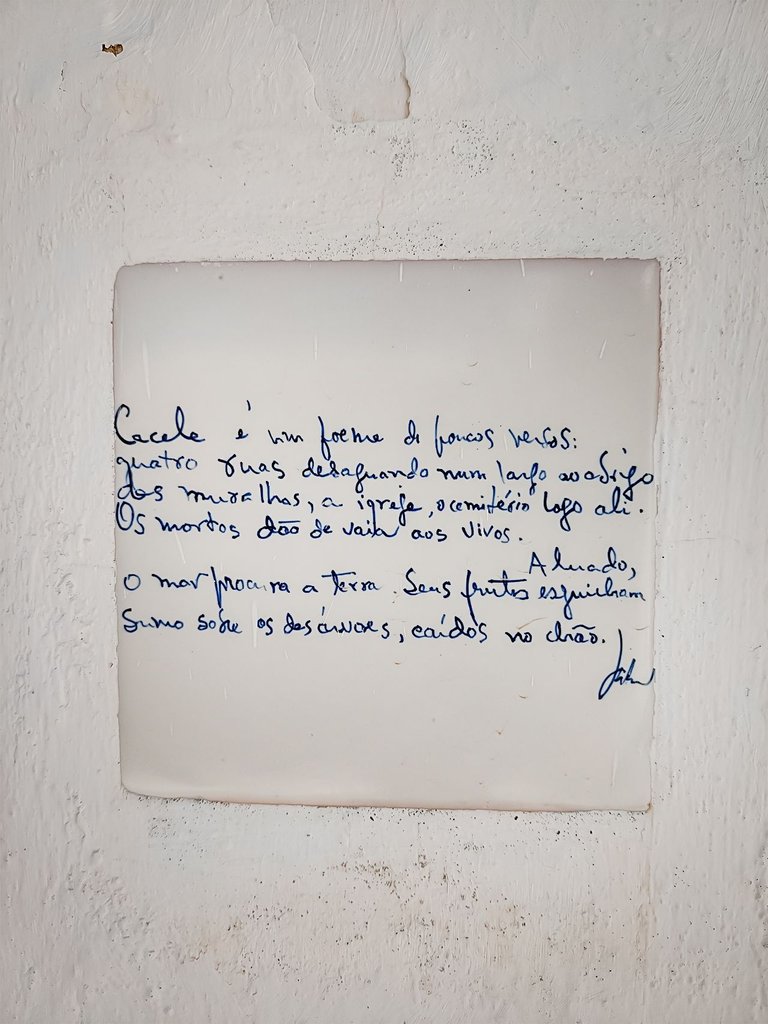 Cacela é um poema de poucos versos:
quatro ruas desaguando num largo ao abrigo
das muralhas, a igreja, o cemitério logo ali.
Os mortos dão de vaia aos vivos.
Aluado,
o mar procura a terra. Seus frutos esguicham
sumo sobre os das árvores, caídos no chão.